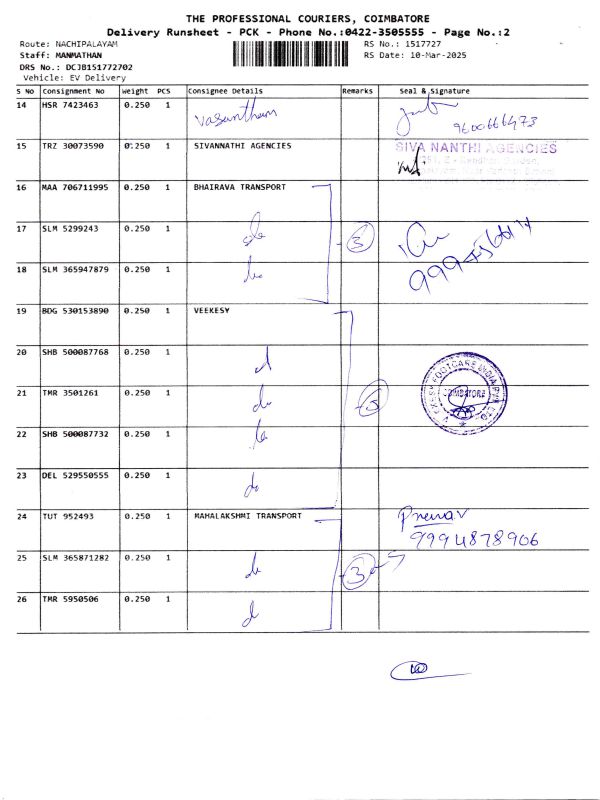 THE PROFESSIONAL COURIERS, COIMBATORE
Delivery Runsheet - PCK - Phone No.:0422-3505555 - Page No.:2
Route: NACHIPALAYAM RS No.: 1517727
Staff: MANMATHAN RS Date: 10-Mar-2025
DRS No.: DCJB151772702
Vehicle: EV Delivery
S No Consignment No Weight PCS Consignee Details Remarks Seal & Signature
14 HSR 7423463 0.250 1 Vasantham
9600666473
15 TRZ 30073590 0.250 1 SIVANNATHI AGENCIES SIVA NANTHI AGENCIES
16 MAA 706711995 0.250 1 BHAIRAVA TRANSPORT
17 SLM 5299243 0.250 1 do 3
18 SLM 365947879 0.250 1 do
19 BDG 530153890 0.250 1 VEEKESY
20 SHB 500087768 0.250 1 do
21 TMR 3501261 0.250 1 do 5 COIMBATORE
22 SHB 500087732 0.250 1 do
23 DEL 529550555 0.250 1 do
24 TUT 952493 0.250 1 MAHALAKSHMI TRANSPORT
9994878906
25 SLM 365871282 0.250 1 do 3
26 TMR 5950506 0.250 1 do